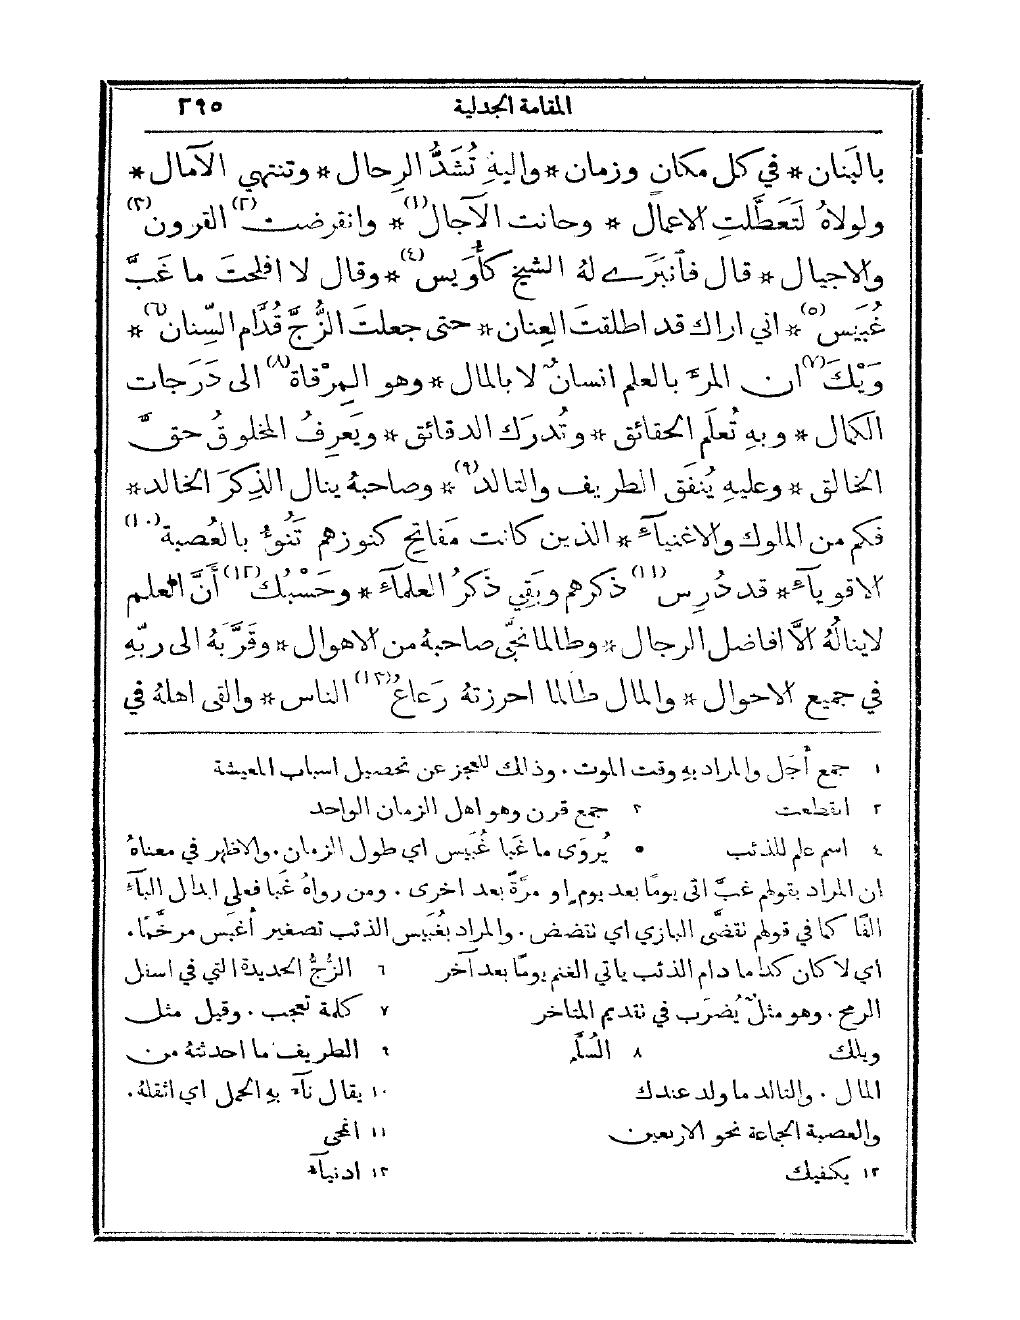 المقامة الجدلية ٢٩٥
بالبَنان * في كل مكان وزمان * واليهِ تُشَدُّ الرِحال * وتنتهي الآمال *
ولولاهُ لتَعَطَّلتِ الاعمال * وحانت الآجال(١) * وانقرضت(٢) القرون(٣)
والاجيال * قال فأنبَرَى لهُ الشيخ كأُوَيس(٤) * وقال لا افلحتَ ما غَبَّ
غُبَيَس(٥) * اني اراك قد اطلقتَ العِنان * حتى جعلتَ الزُّجَّ قُدَّام السِّنان(٦) *
وَيْكَ(٧) ان المرءَ بالعلم انسانٌ لا بالمال * وهو المِرْقاة(٨) الى دَرَجات
الكمال * وبهِ تُعلَم الحقائق * وتُدرَك الدقائق * ويَعرِفُ المخلوقُ حقَّ
الخالق * وعليهِ يُنفَق الطريف والتالد(٩) * وصاحبهُ ينال الذِكرَ الخالد *
فكم من الملوك والاغنيآء * الذين كانت مَفاتح كنوزهم تَنُوءُ بالعُصبة(١٠)
الاقويآء * قد دُرِس(١١) ذكرهم وبَقِي ذكرُ العلمآء * وحَسْبُك(١٢) أَنَّ العلم
لا ينالُهُ الَّا افاضل الرجال * وطالما نجَّى صاحبهُ من الاهوال * وقَرَّبهُ الى ربّهِ
في جميع الاحوال * والمال طالما احرزتهُ رَعاعُ(١٣) الناس * والقى اهلهُ في
١ جمع أَجَل والمراد بهِ وقت الموت . وذلك للعجز عن تحصيل اسباب المعيشة
٢ انقطعت ٣ جمع قرن وهو اهل الزمان الواحد
٤ اسم علم للذئب ٥ يُروَى ما غَبا غُبَيس اي طول الزمان . والاظهر في معناهُ
ان المراد بقولهم غبَّ اتى يومًا بعد يومٍ او مرَّةً بعد اخرى . ومن رواهُ غَبا فعلى ابدال البآء
الفًا كما في قولهم تقضَّى البازي اي تقضض . والمراد بغُبَيس الذئب تصغير أَغبَس مرخَّمًا .
اي لا كان كذا ما دام الذئب ياتي الغنم يومًا بعد آخر ٦ الزُّجُّ الحديدة التي في اسفل
الرمح . وهو مثلٌ يُضرَب في تقديم المتاخر ٧ كلمة تعجب . وقيل مثل
ويلك ٨ السُلَّم ٩ الطريف ما احدثتهُ من
المال . والتالد ما ولد عندك ١٠ يقال نآءَ بهِ الحمل اي اثقلهُ .
والعصبة الجماعة نحو الاربعين ١١ انمحى
١٢ يكفيك ١٣ ادنيآء